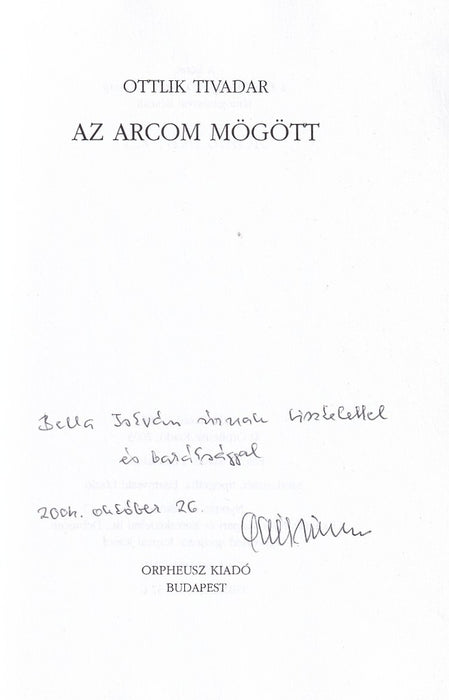 OTTLIK TIVADAR
AZ ARCOM MÖGÖTT
Bella István úrnak tisztelettel
és barátsággal
2004. október 26.
ORPHEUSZ KIADÓ
BUDAPEST